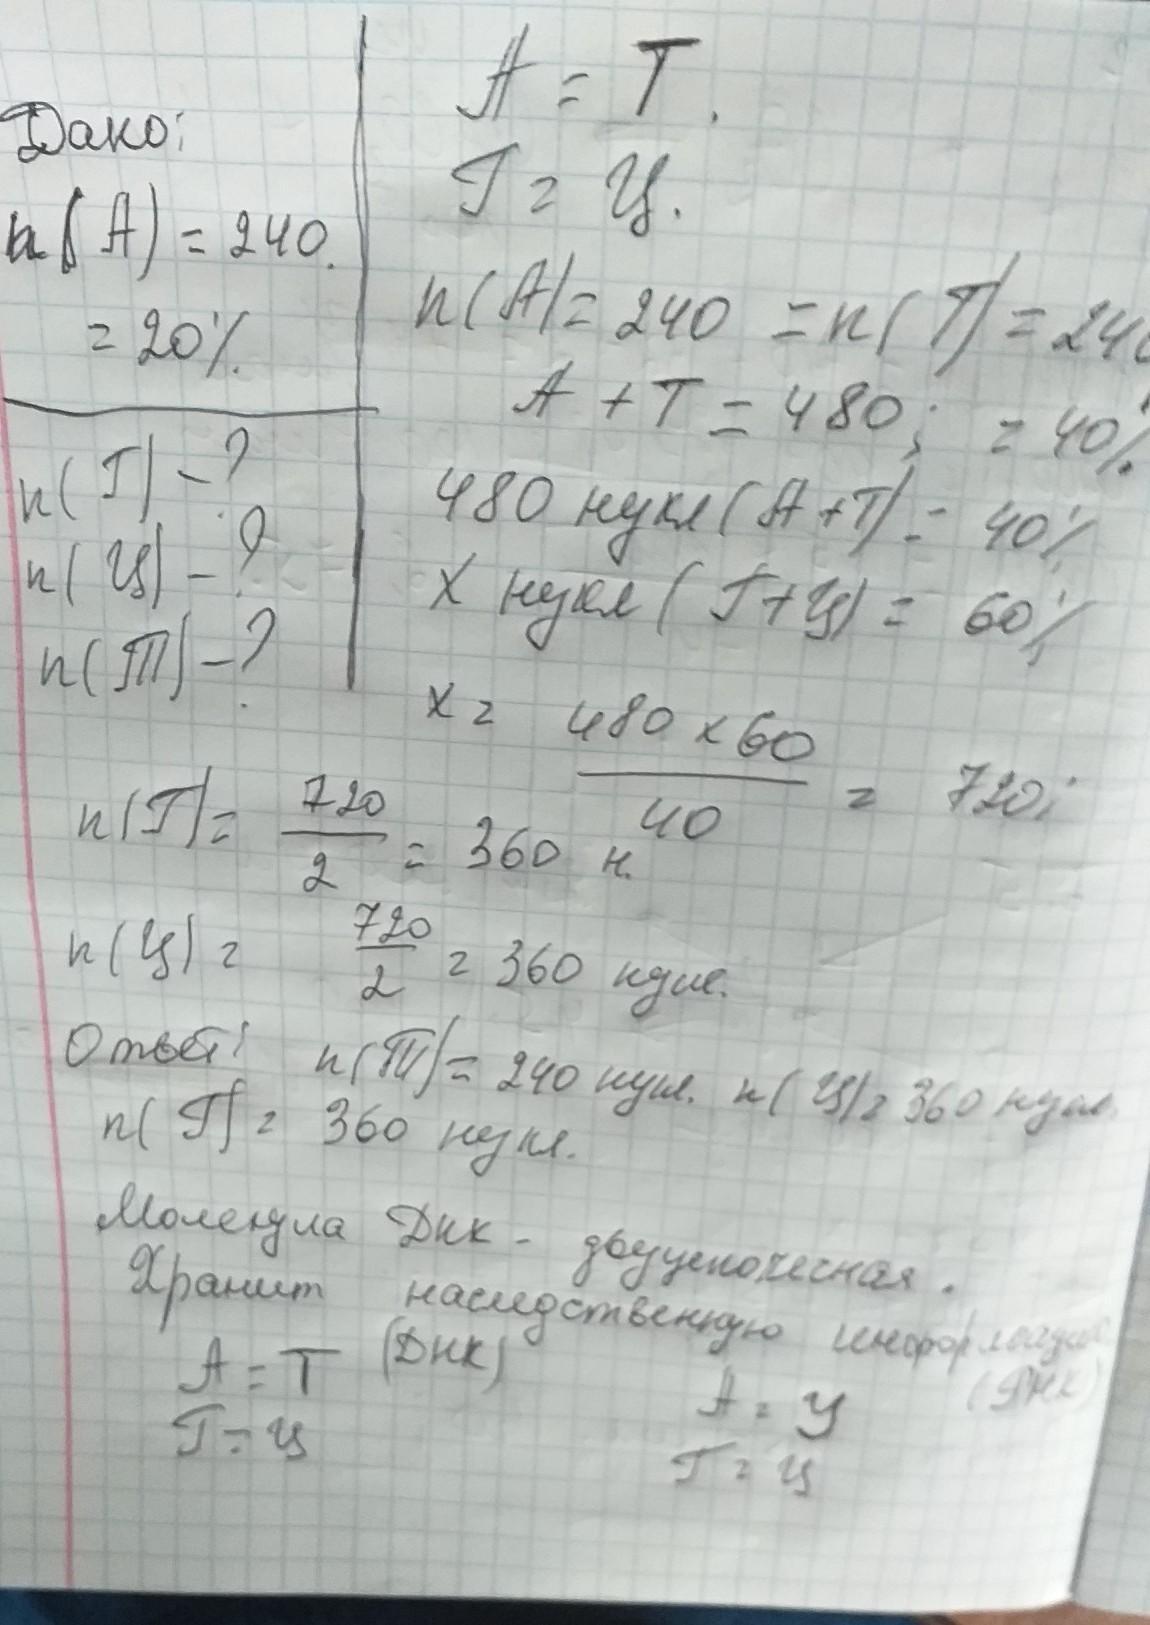 Дано:
n(А) = 240.
= 20%.
n(Г) - ?
n(Ц) - ?
n(Т) - ?
А = Т.
Г = Ц.
n(А) = 240 = n(Т) = 240
А + Т = 480; = 40%.
480 нукл (А+Т) = 40%
х нукл (Г+Ц) = 60%
х = 480 × 60 / 40 = 720;
n(Г) = 720 / 2 = 360 н.
n(Ц) = 720 / 2 = 360 нукл.
Ответ: n(Т) = 240 нукл. n(Ц) = 360 нукл.
n(Г) = 360 нукл.
Молекула ДНК - двуцепочечная.
Хранит наследственную информацию
А = Т (ДНК)
Г = Ц
А = У (РНК)
Г = Ц